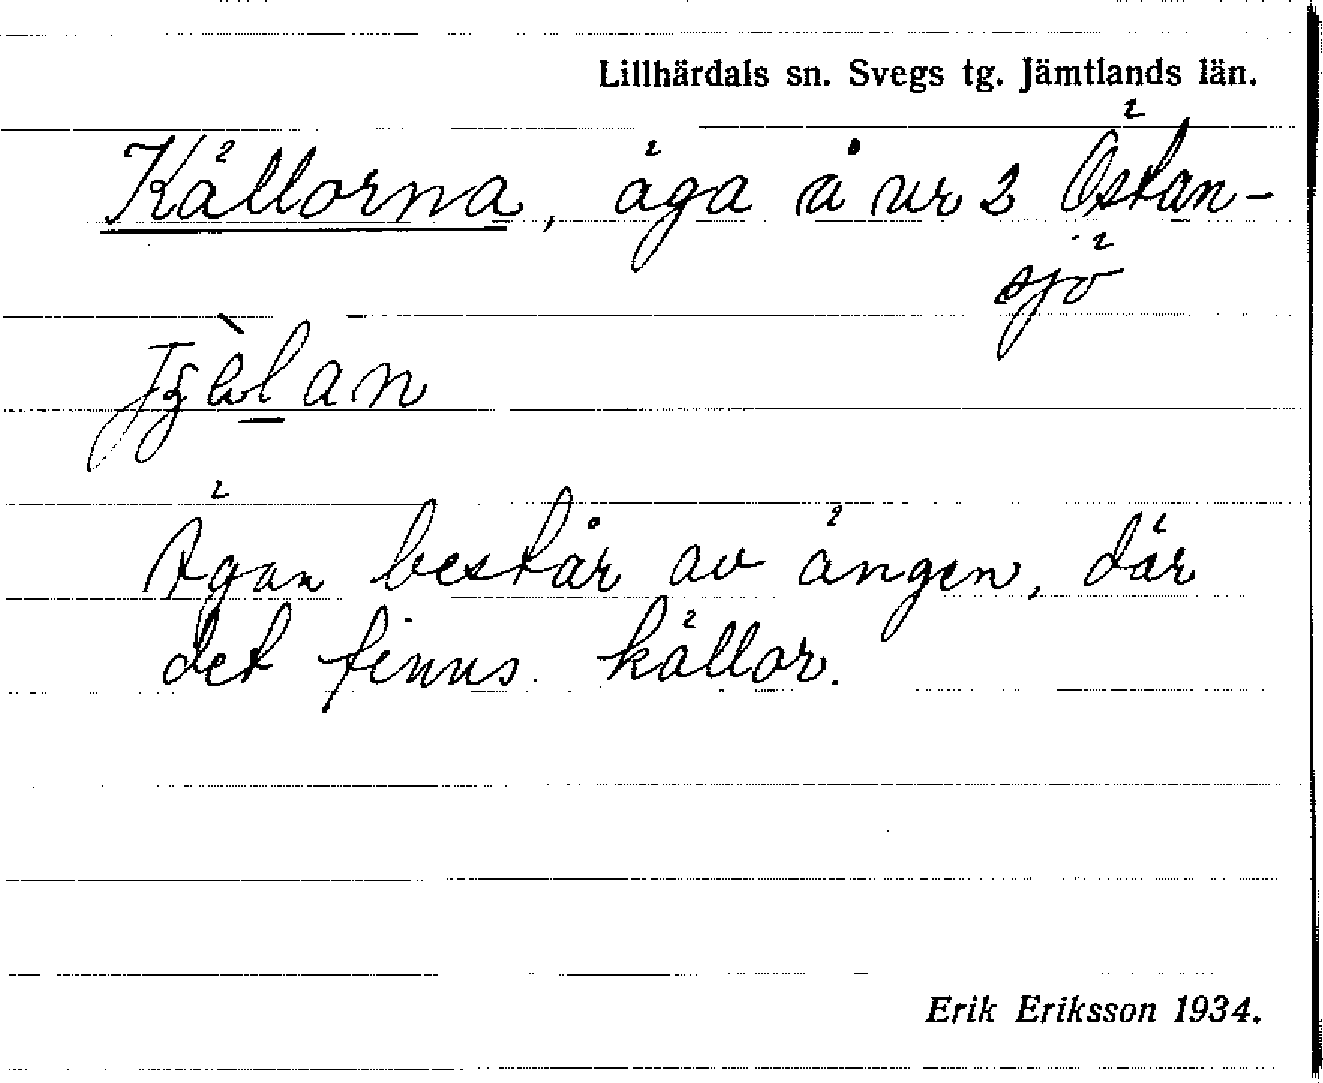 Lillhärdals sn. Svegs tg. Jämtlands län.
Källorna, äga å nr 2 Östan-
sjö
Ägan består av ängen, där
det finns källor.
Erik Eriksson 1934.